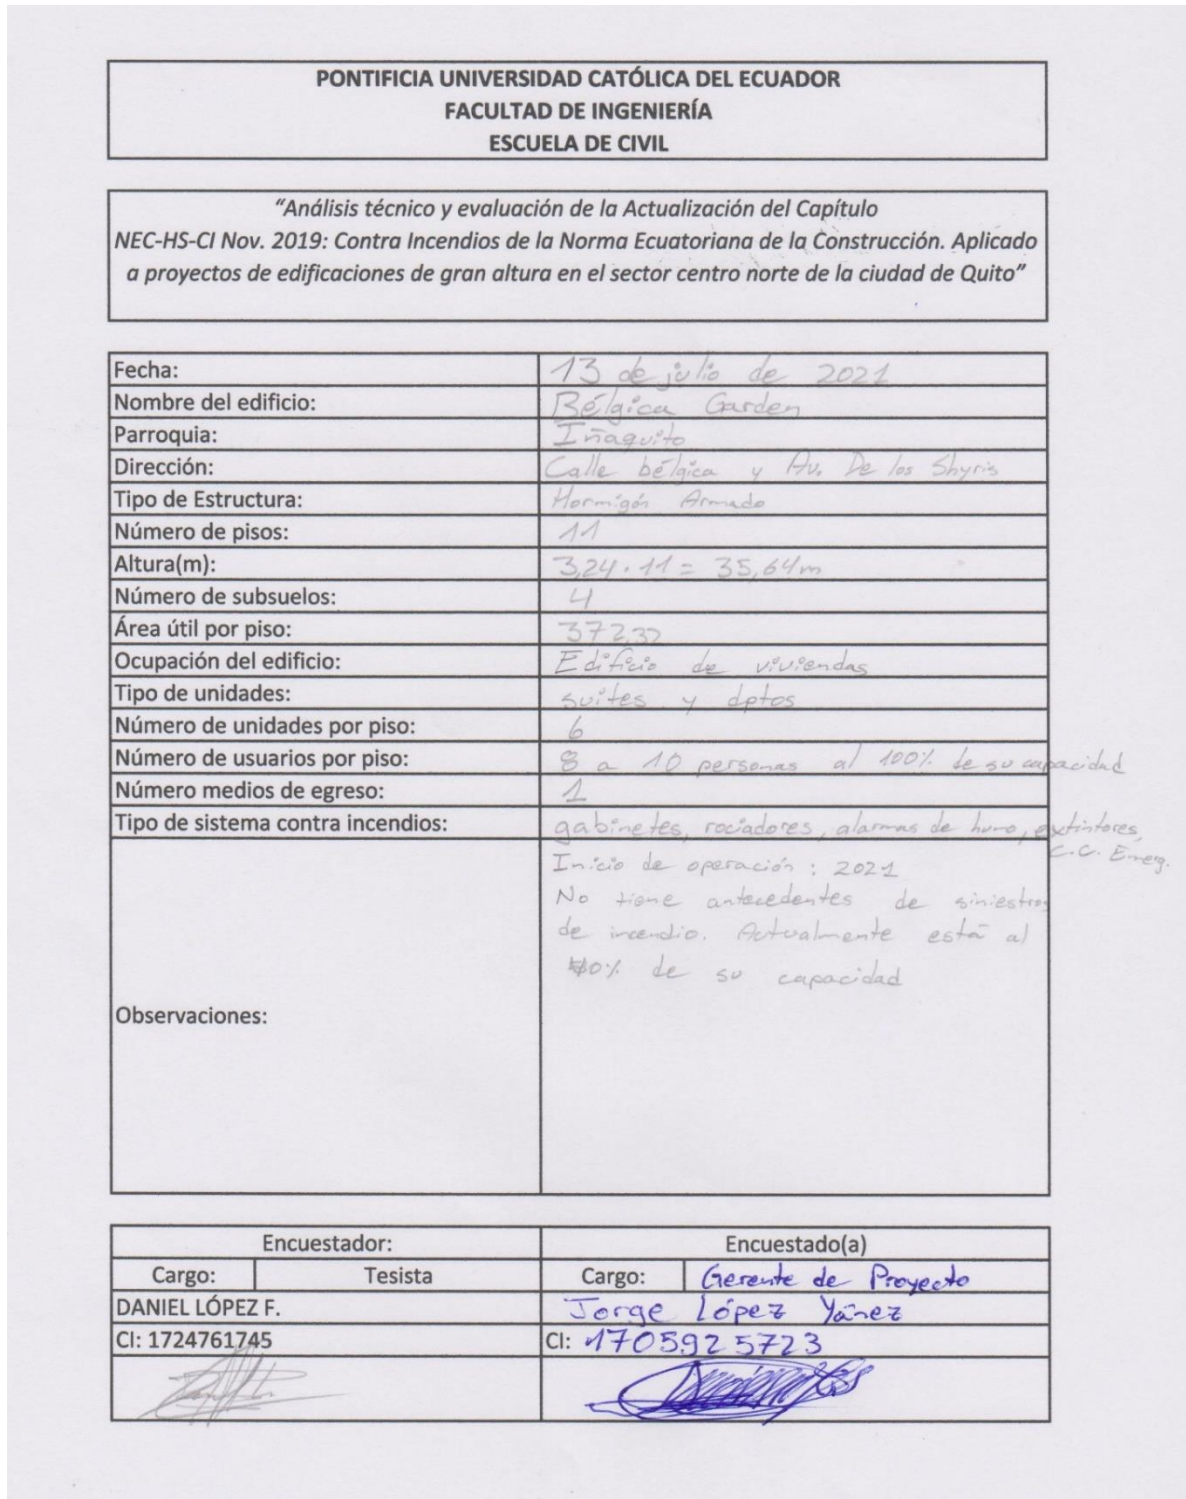 PONTIFICIA UNIVERSIDAD CATÓLICA DEL ECUADOR
FACULTAD DE INGENIERÍA
ESCUELA DE CIVIL
“Análisis técnico y evaluación de la Actualización del Capítulo
NEC-HS-CI Nov. 2019: Contra Incendios de la Norma Ecuatoriana de la Construcción. Aplicado
a proyectos de edificaciones de gran altura en el sector centro norte de la ciudad de Quito”
Fecha: 13 de julio de 2021
Nombre del edificio: Bélgica Garden
Parroquia: Iñaquito
Dirección: Calle bélgica y Av. De los Shyris
Tipo de Estructura: Hormigón Armado
Número de pisos: 11
Altura(m): 3,24 . 11 = 35,64m
Número de subsuelos: 4
Área útil por piso: 372,32
Ocupación del edificio: Edificio de viviendas
Tipo de unidades: suites y dptos
Número de unidades por piso: 6
Número de usuarios por piso: 8 a 10 personas al 100% de su capacidad
Número medios de egreso: 1
Tipo de sistema contra incendios: gabinetes, rociadores, alarmas de humo, extintores,
C.C. Emerg.
Observaciones:
Inicio de operación : 2021
No tiene antecedentes de siniestros
de incendio. Actualmente está al
0% de su capacidad
Encuestador: Encuestado(a)
Cargo: Tesista Cargo: Gerente de Proyecto
DANIEL LÓPEZ F. Jorge López Yánez
CI: 1724761745 CI: 1705925723